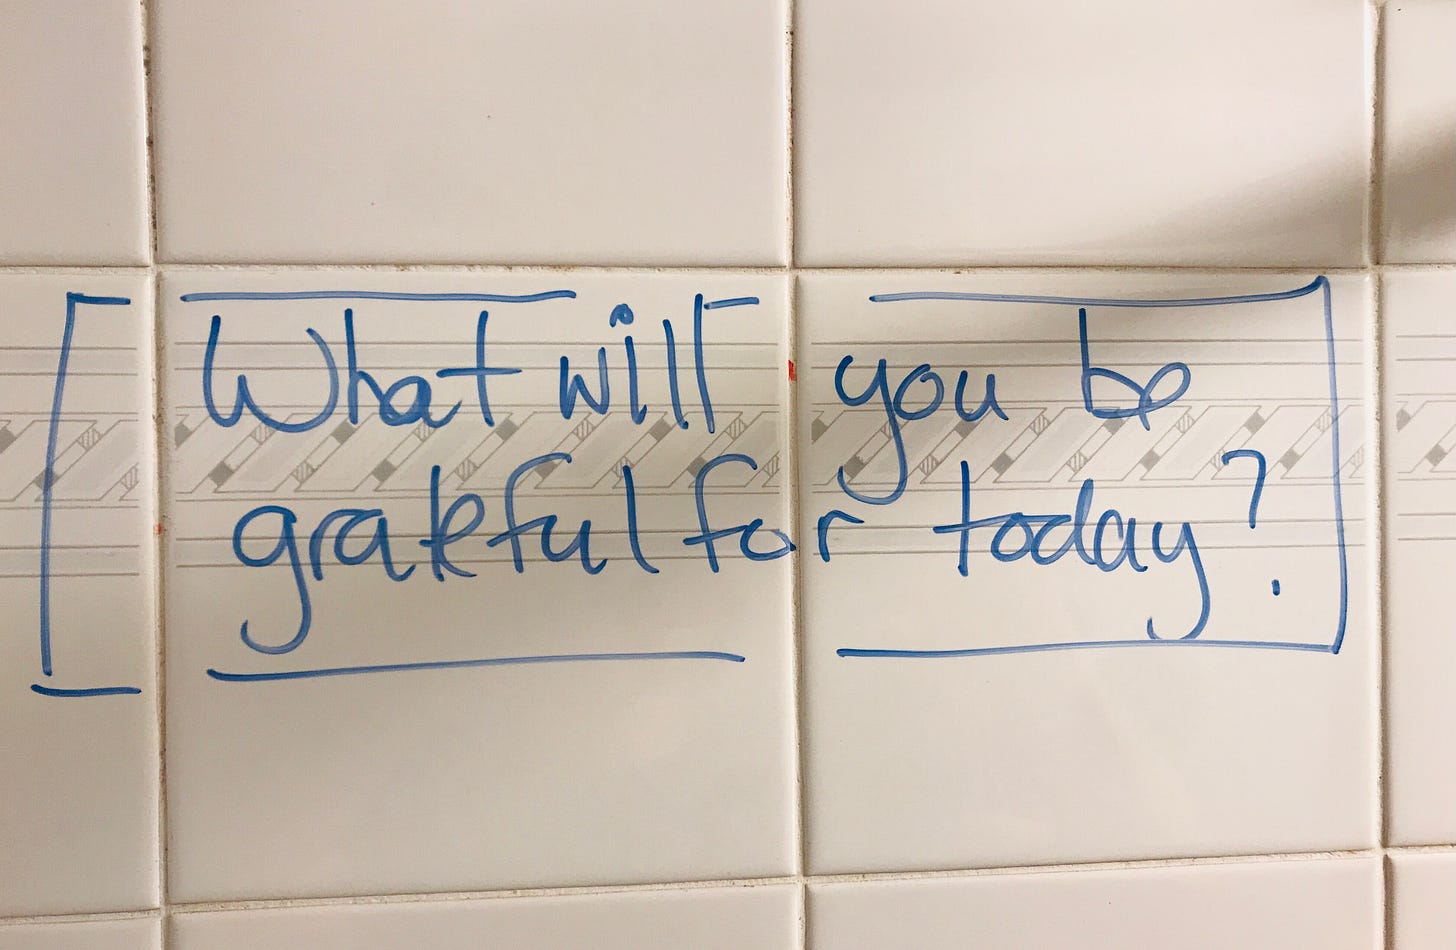 What will you be
grateful for today?